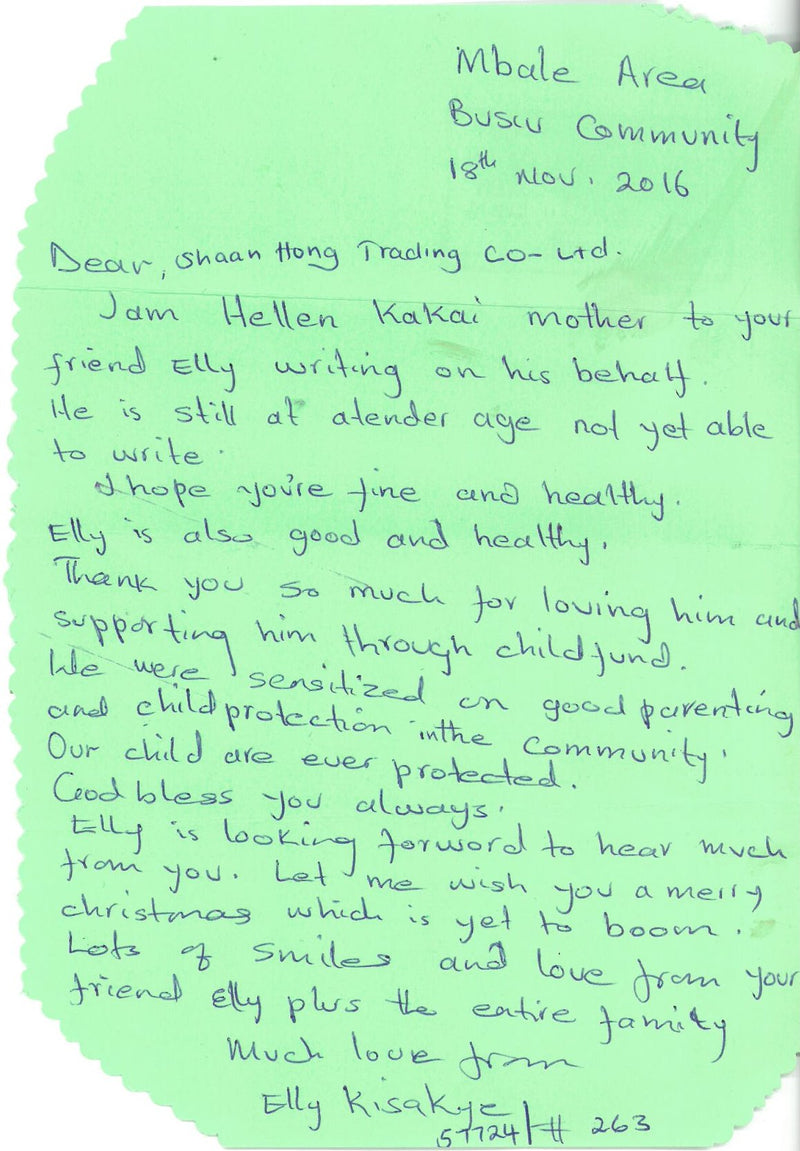 Mbale Area
Busiu Community
18th Nov. 2016
Dear, Shaan Hong Trading Co- Ltd.
Iam Hellen Kakai mother to your
friend Elly writing on his behalf.
He is still at atender age not yet able
to write.
I hope you're fine and healthy.
Elly is also good and healthy.
Thank you so much for loving him and
supporting him through childfund.
We were sensitized on good parenting
and child protection inthe Community.
Our child are ever protected.
God bless you always.
Elly is looking forword to hear much
from you. Let me wish you a merry
christmas which is yet to boom.
Lots of smiles and love from your
friend Elly plus the entire family
Much love from
Elly Kisakye
57724/# 263